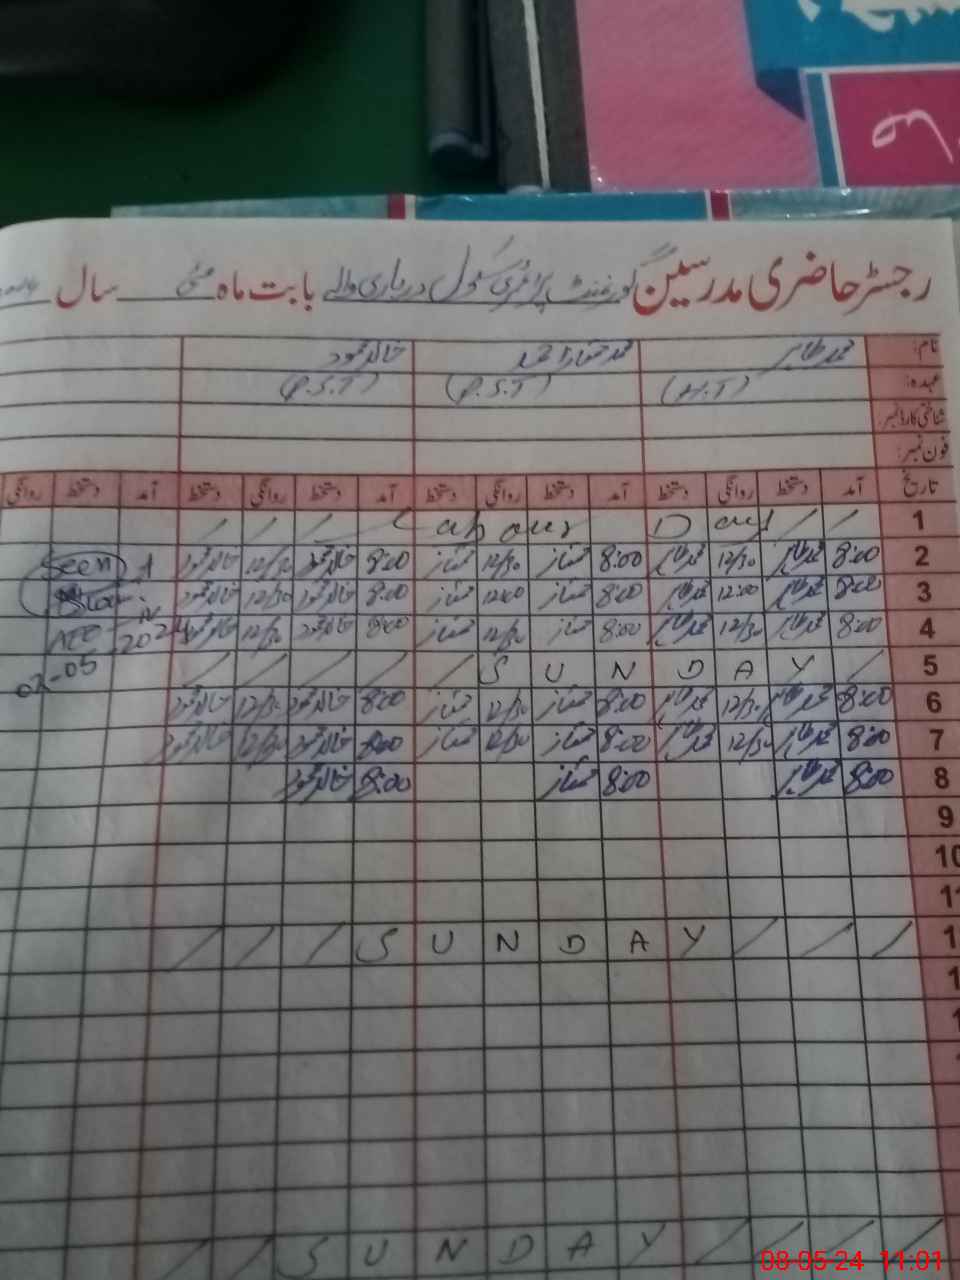 رجسٹر حاضری مدرسین گورنمنٹ پرائمری سکول درباری والے بابت ماہ مئی سال
نام: محمد طاہر محمد ممتاز احمد خالد محمود
عہدہ: (H.T) (P.S.T) (P.S.T)
شناختی کارڈ نمبر:
فون نمبر:
تاریخ آمد دستخط روانگی دستخط آمد دستخط روانگی دستخط آمد دستخط روانگی دستخط آمد دستخط روانگی
1 Labour Day
2 8:00 محمد طاہر 12/30 محمد طاہر 8:00 ممتاز 12/30 ممتاز 8:00 خالد محمود 12/30 خالد محمود Seen
3 8:00 محمد طاہر 12:00 محمد طاہر 8:00 ممتاز 12:00 ممتاز 8:00 خالد محمود 12/30 خالد محمود
4 8:00 محمد طاہر 12/30 محمد طاہر 8:00 ممتاز 12/30 ممتاز 8:00 خالد محمود 12/30 خالد محمود AEO 2024
5 / SUNDAY / / / / / 02-05
6 8:00 محمد طاہر 12/30 محمد طاہر 8:00 ممتاز 12/30 ممتاز 8:00 خالد محمود 12/30 خالد محمود
7 8:00 محمد طاہر 12/30 محمد طاہر 8:00 ممتاز 12/30 ممتاز 8:00 خالد محمود 12/30 خالد محمود
8 8:00 محمد طاہر 8:00 ممتاز 8:00 خالد محمود
9
10
1
1 / / / SUNDAY / / /
1
1
/ / / / SUNDAY / /
08-05-24 11:01